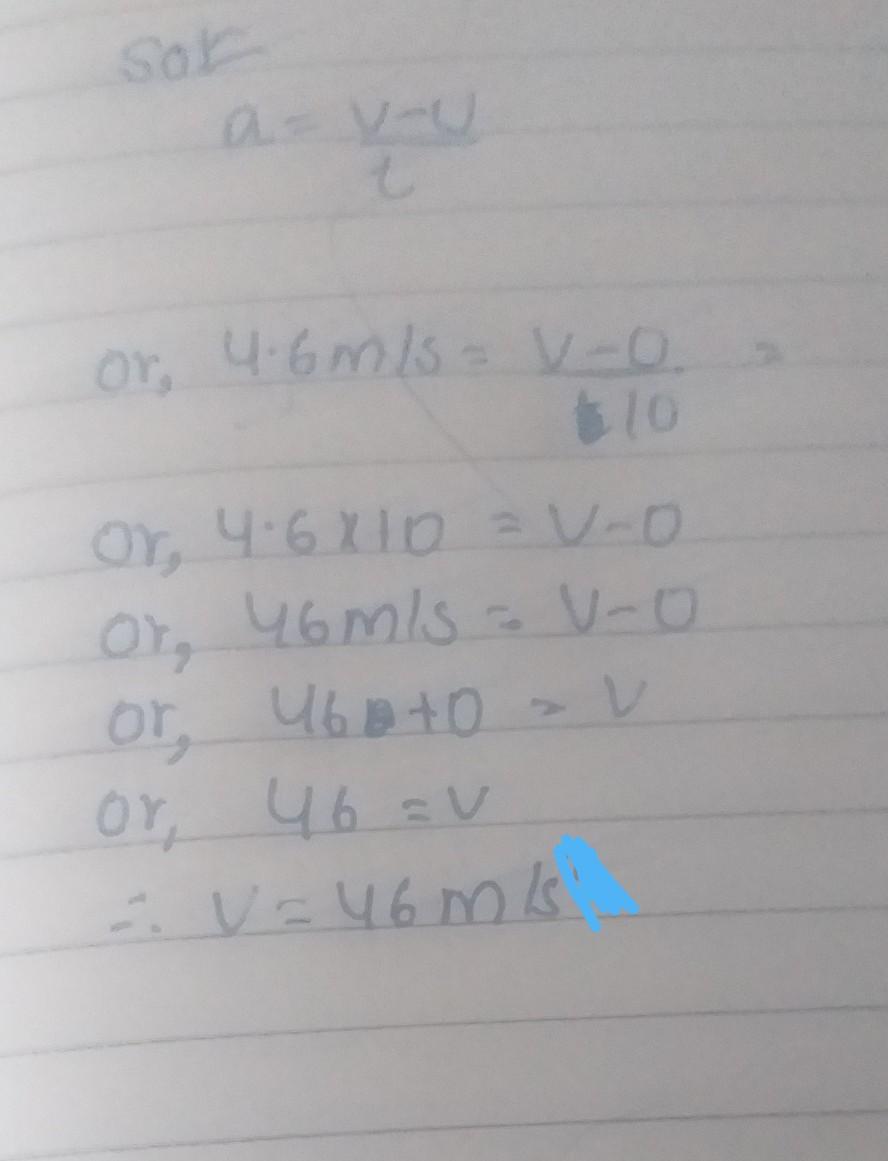 Solⁿ
a = v-u
t
or, 4.6m/s = v-0 =
10
or, 4.6x10 = v-0
or, 46m/s = v-0
or, 46 +0 = v
or, 46 = v
∴ v = 46 m/s